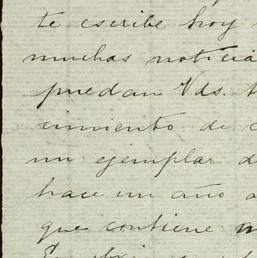 te escribe hoy
muchas noticia
puedan Vds.
cimiento de
un ejemplar d
hace un año a
que contiene